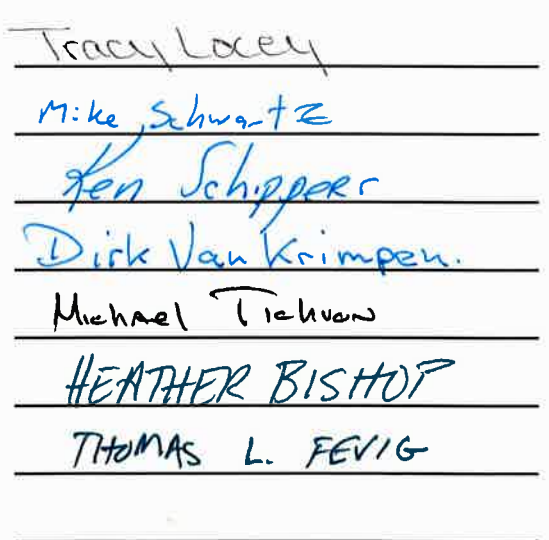 Tracy Locey
Mike Schwartz
Ken Schipper
Dirk Van Krimpen.
Michael
HEATHER BISHOP
THOMAS L. FEVIG